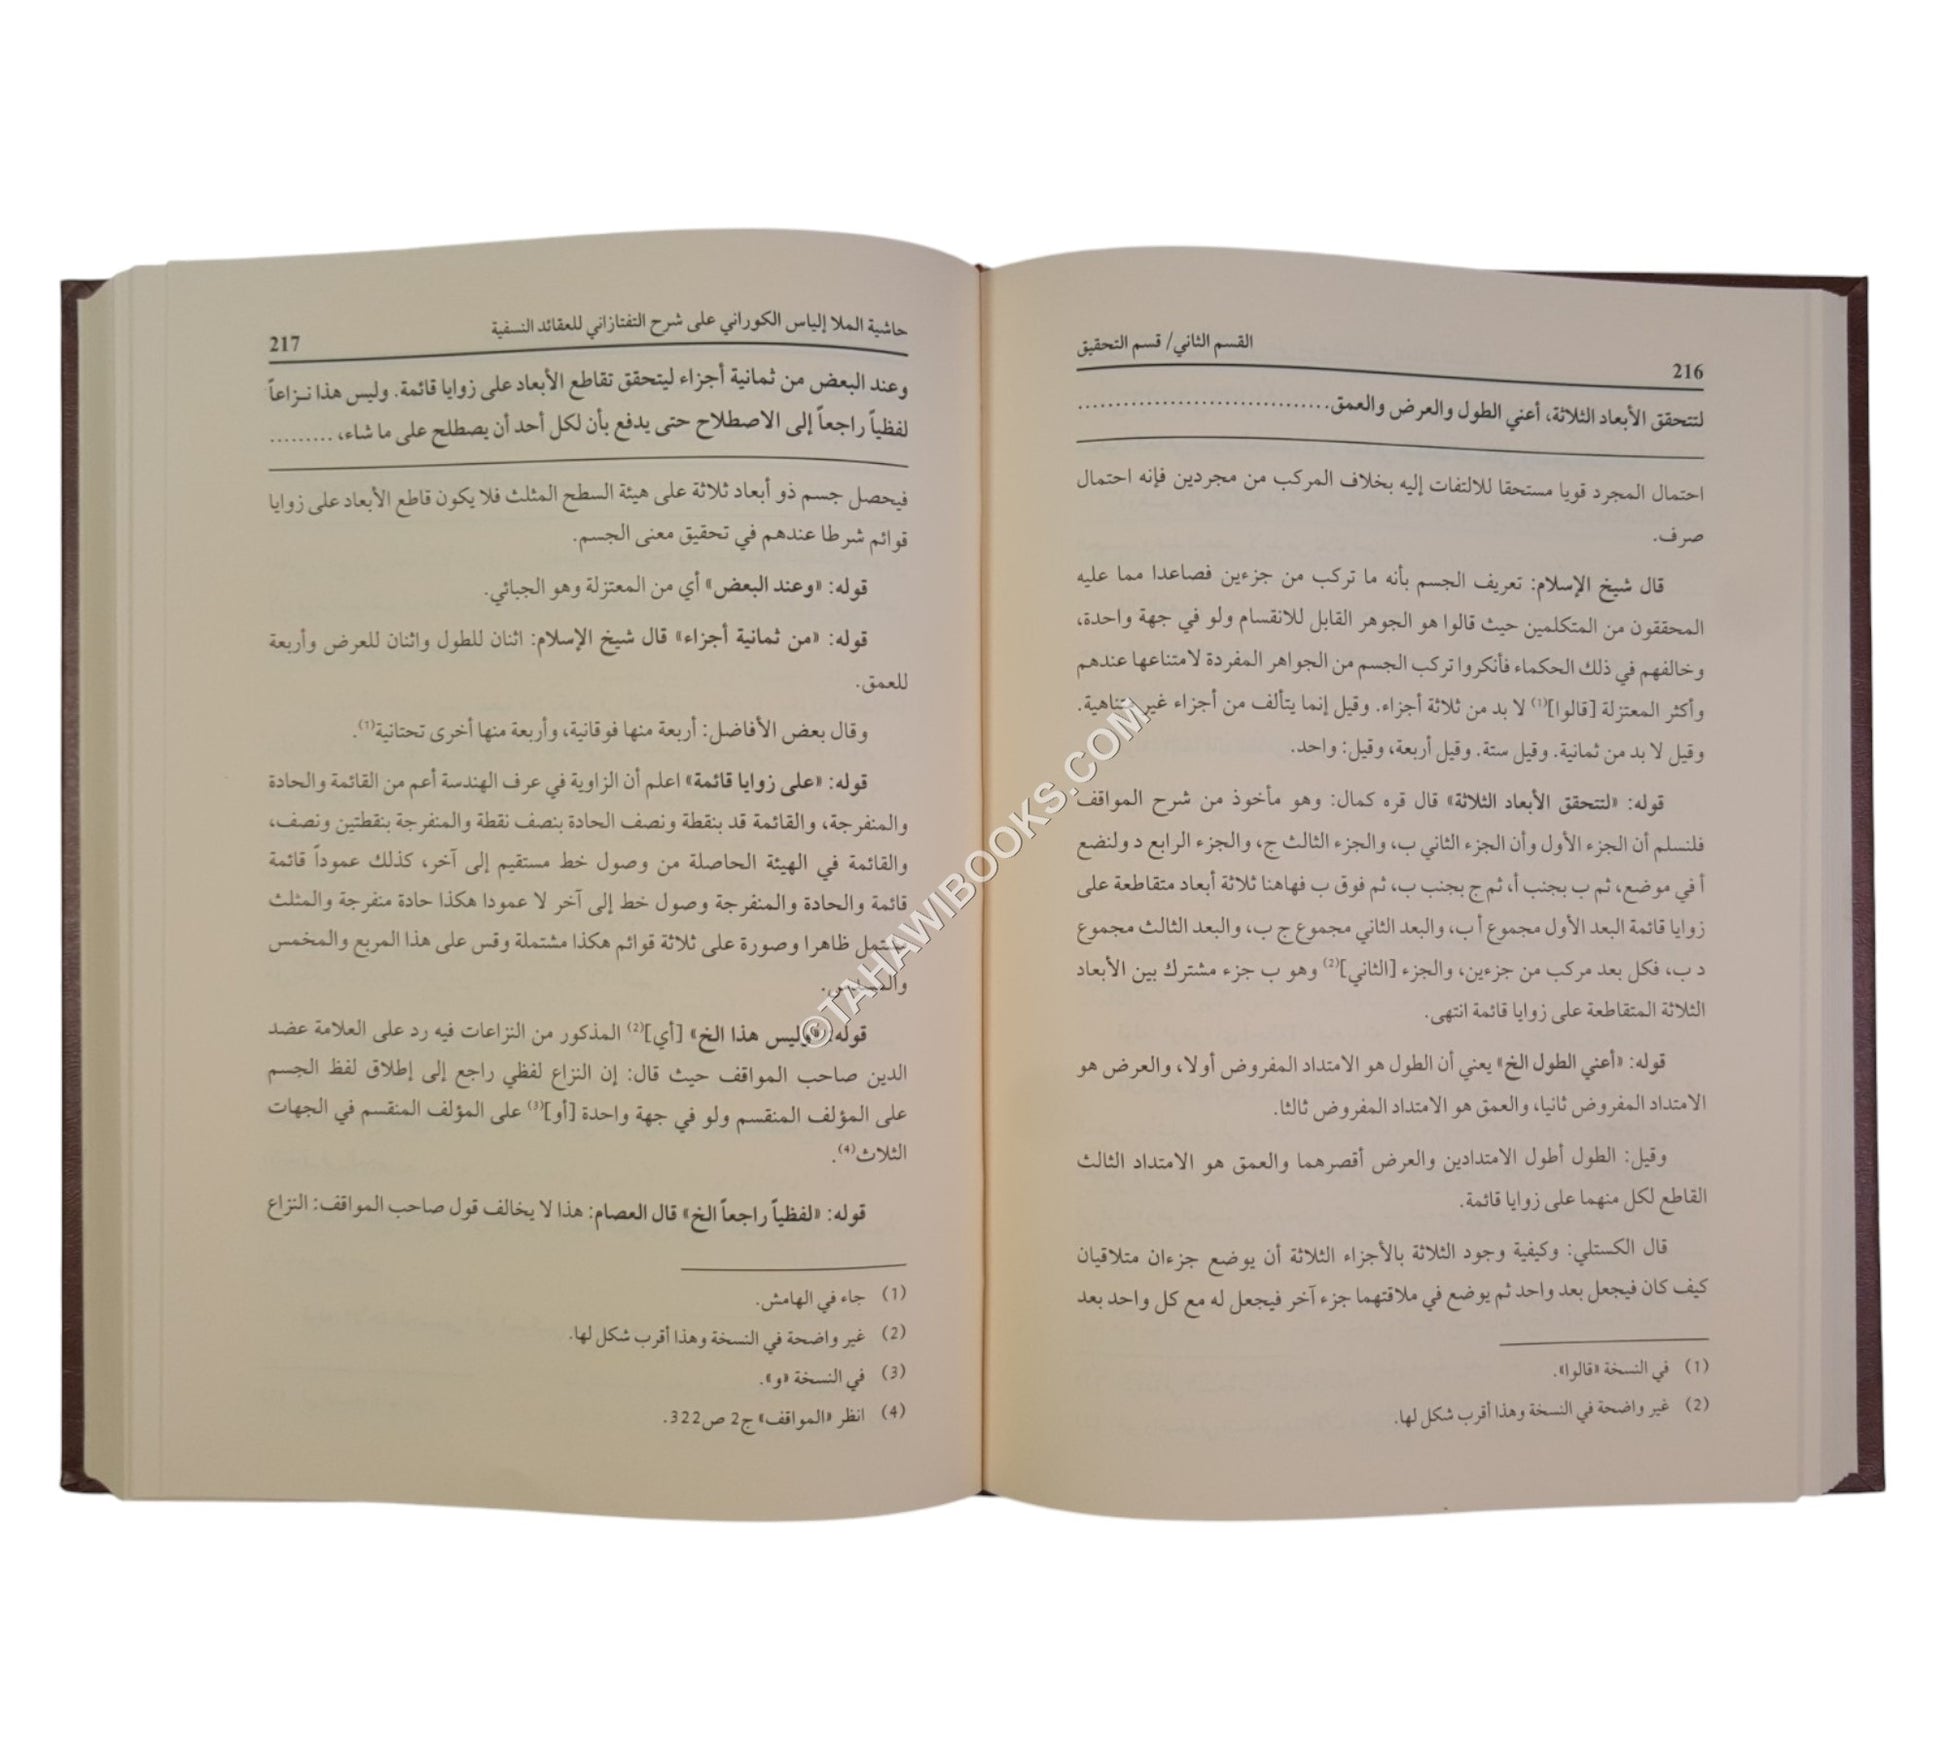 القسم الثاني/ قسم التحقيق
216
لتتحقق الأبعاد الثلاثة، أعني الطول والعرض والعمق................................
احتمال المجرد قويا مستحقا للالتفات إليه بخلاف المركب من مجردين فإنه احتمال
صرف.
قال شيخ الإسلام: تعريف الجسم بأنه ما تركب من جزءين فصاعدا مما عليه
المحققون من المتكلمين حيث قالوا هو الجوهر القابل للانقسام ولو في جهة واحدة،
وخالفهم في ذلك الحكماء فأنكروا تركب الجسم من الجواهر المفردة لامتناعها عندهم
وأكثر المعتزلة [قالوا](1) لا بد من ثلاثة أجزاء. وقيل إنما يتألف من أجزاء غير متناهية.
وقيل لا بد من ثمانية. وقيل ستة. وقيل أربعة، وقيل: واحد.
قوله: «لتتحقق الأبعاد الثلاثة» قال قره كمال: وهو مأخوذ من شرح المواقف
فلنسلم أن الجزء الأول وأن الجزء الثاني ب، والجزء الثالث ج، والجزء الرابع د ولنضع
أ في موضع، ثم ب بجنب أ، ثم ج بجنب ب، ثم فوق ب فهاهنا ثلاثة أبعاد متقاطعة على
زوايا قائمة البعد الأول مجموع أ ب، والبعد الثاني مجموع ج ب، والبعد الثالث مجموع
د ب، فكل بعد مركب من جزءين، والجزء [الثاني](2) وهو ب جزء مشترك بين الأبعاد
الثلاثة المتقاطعة على زوايا قائمة انتهى.
قوله: «أعني الطول الخ» يعني أن الطول هو الامتداد المفروض أولا، والعرض هو
الامتداد المفروض ثانيا، والعمق هو الامتداد المفروض ثالثا.
وقيل: الطول أطول الامتدادين والعرض أقصرهما والعمق هو الامتداد الثالث
القاطع لكل منهما على زوايا قائمة.
قال الكستلي: وكيفية وجود الثلاثة بالأجزاء الثلاثة أن يوضع جزءان متلاقيان
كيف كان فيجعل بعد واحد ثم يوضع في ملاقتهما جزء آخر فيجعل له مع كل واحد بعد
(1) في النسخة «قالوا».
(2) غير واضحة في النسخة وهذا أقرب شكل لها.
حاشية الملا إلياس الكوراني على شرح التفتازاني للعقائد النسفية
217
وعند البعض من ثمانية أجزاء ليتحقق تقاطع الأبعاد على زوايا قائمة. وليس هذا نـزاعاً
لفظياً راجعاً إلى الاصطلاح حتى يدفع بأن لكل أحد أن يصطلح على ما شاء، .........
فيحصل جسم ذو أبعاد ثلاثة على هيئة السطح المثلث فلا يكون قاطع الأبعاد على زوايا
قوائم شرطا عندهم في تحقيق معنى الجسم.
قوله: «وعند البعض» أي من المعتزلة وهو الجبائي.
قوله: «من ثمانية أجزاء» قال شيخ الإسلام: اثنان للطول واثنان للعرض وأربعة
للعمق.
وقال بعض الأفاضل: أربعة منها فوقانية، وأربعة منها أخرى تحتانية(1).
قوله: «على زوايا قائمة» اعلم أن الزاوية في عرف الهندسة أعم من القائمة والحادة
والمنفرجة، والقائمة قد بنقطة ونصف الحادة بنصف نقطة والمنفرجة بنقطتين ونصف،
والقائمة في الهيئة الحاصلة من وصول خط مستقيم إلى آخر، كذلك عموداً قائمة
قائمة والحادة والمنفرجة وصول خط إلى آخر لا عمودا هكذا حادة منفرجة والمثلث
يشتمل ظاهرا وصورة على ثلاثة قوائم هكذا مشتملة وقس على هذا المربع والمخمس
والمسدس.
قوله: «وليس هذا الخ» [أي](2) المذكور من النزاعات فيه رد على العلامة عضد
الدين صاحب المواقف حيث قال: إن النزاع لفظي راجع إلى إطلاق لفظ الجسم
على المؤلف المنقسم ولو في جهة واحدة [أو](3) على المؤلف المنقسم في الجهات
الثلاث(4).
قوله: «لفظياً راجعاً الخ» قال العصام: هذا لا يخالف قول صاحب المواقف: النزاع
(1) جاء في الهامش.
(2) غير واضحة في النسخة وهذا أقرب شكل لها.
(3) في النسخة «و».
(4) انظر «المواقف» ج2 ص322.
©TAHAWIBOOKS.COM